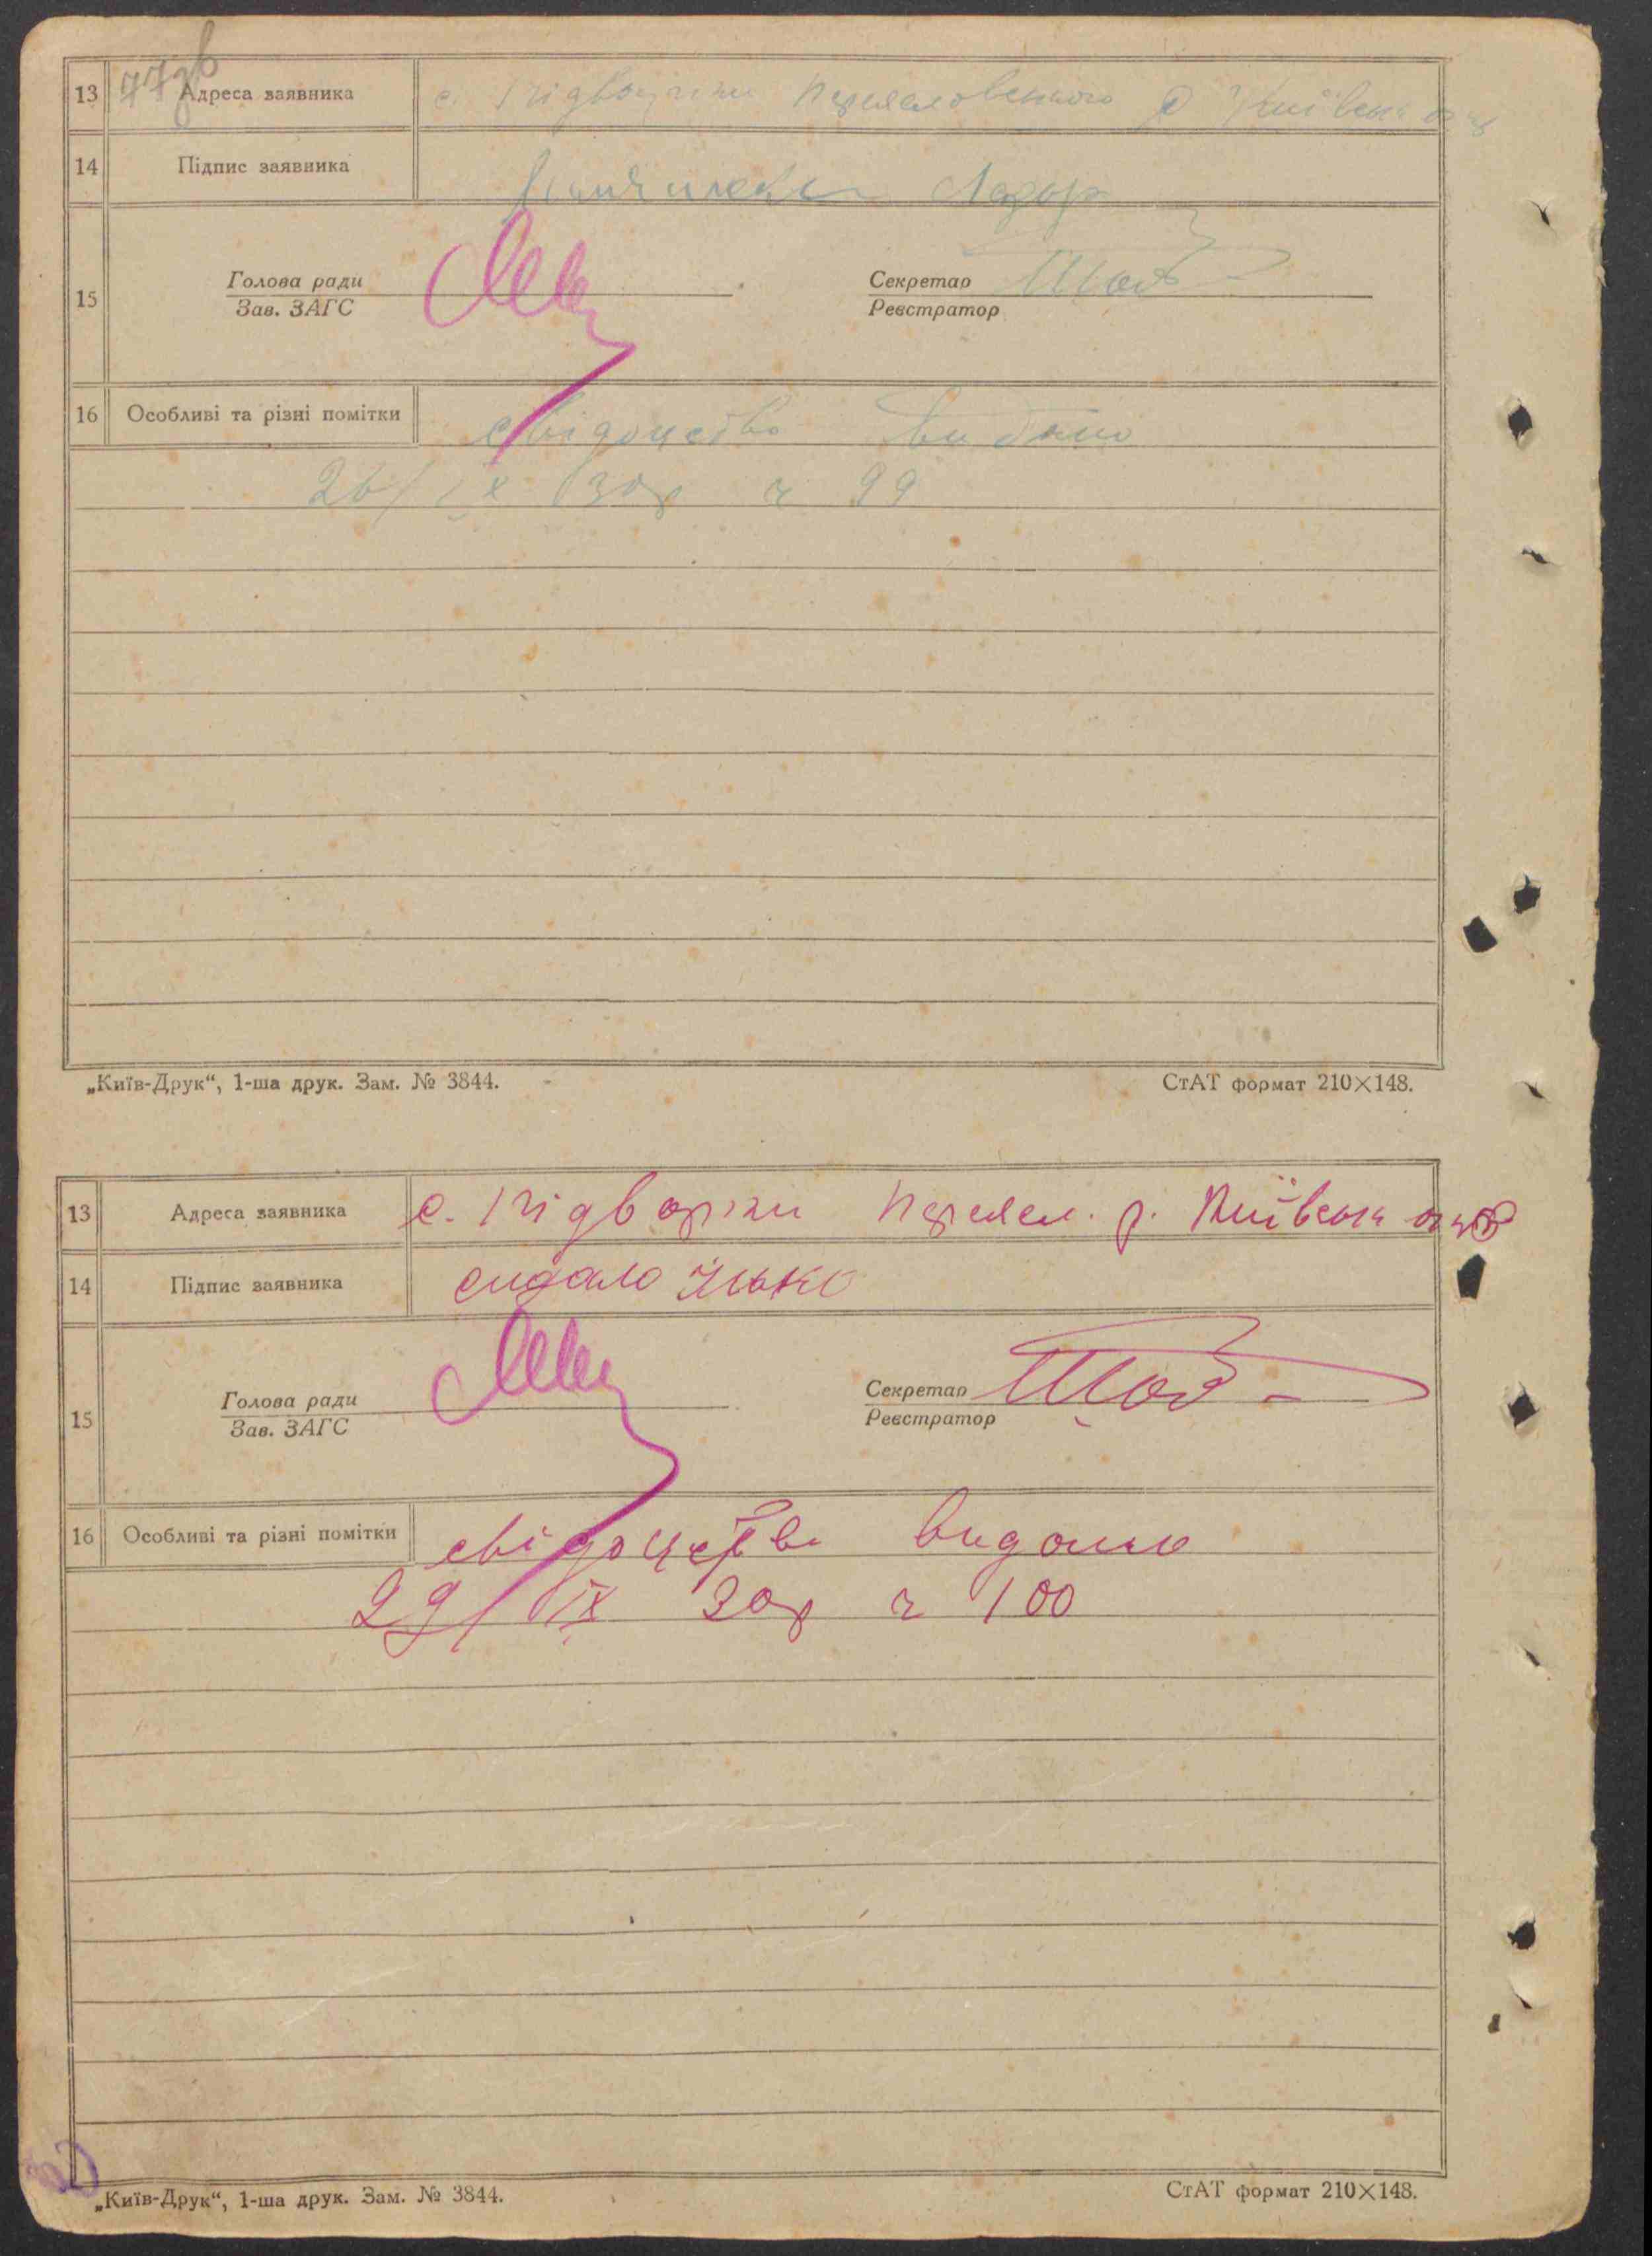 77зв
13 Адреса заявника с. Підворки Переяславського р Київськ окр
14 Підпис заявника
15 Голова ради Секретар
Зав. ЗАГС Реєстратор
16 Особливі та різні помітки свідоцтво видано
26/IX 30р ч 99
„Київ-Друк“, 1-ша друк. Зам. № 3844. СтАТ формат 210×148.
13 Адреса заявника с. Підворки Переясл. р. Київськ окр
14 Підпис заявника
15 Голова ради Секретар
Зав. ЗАГС Реєстратор
16 Особливі та різні помітки свідоцтво видано
29/IX 30р ч 100
„Київ-Друк“, 1-ша друк. Зам. № 3844. СтАТ формат 210×148.